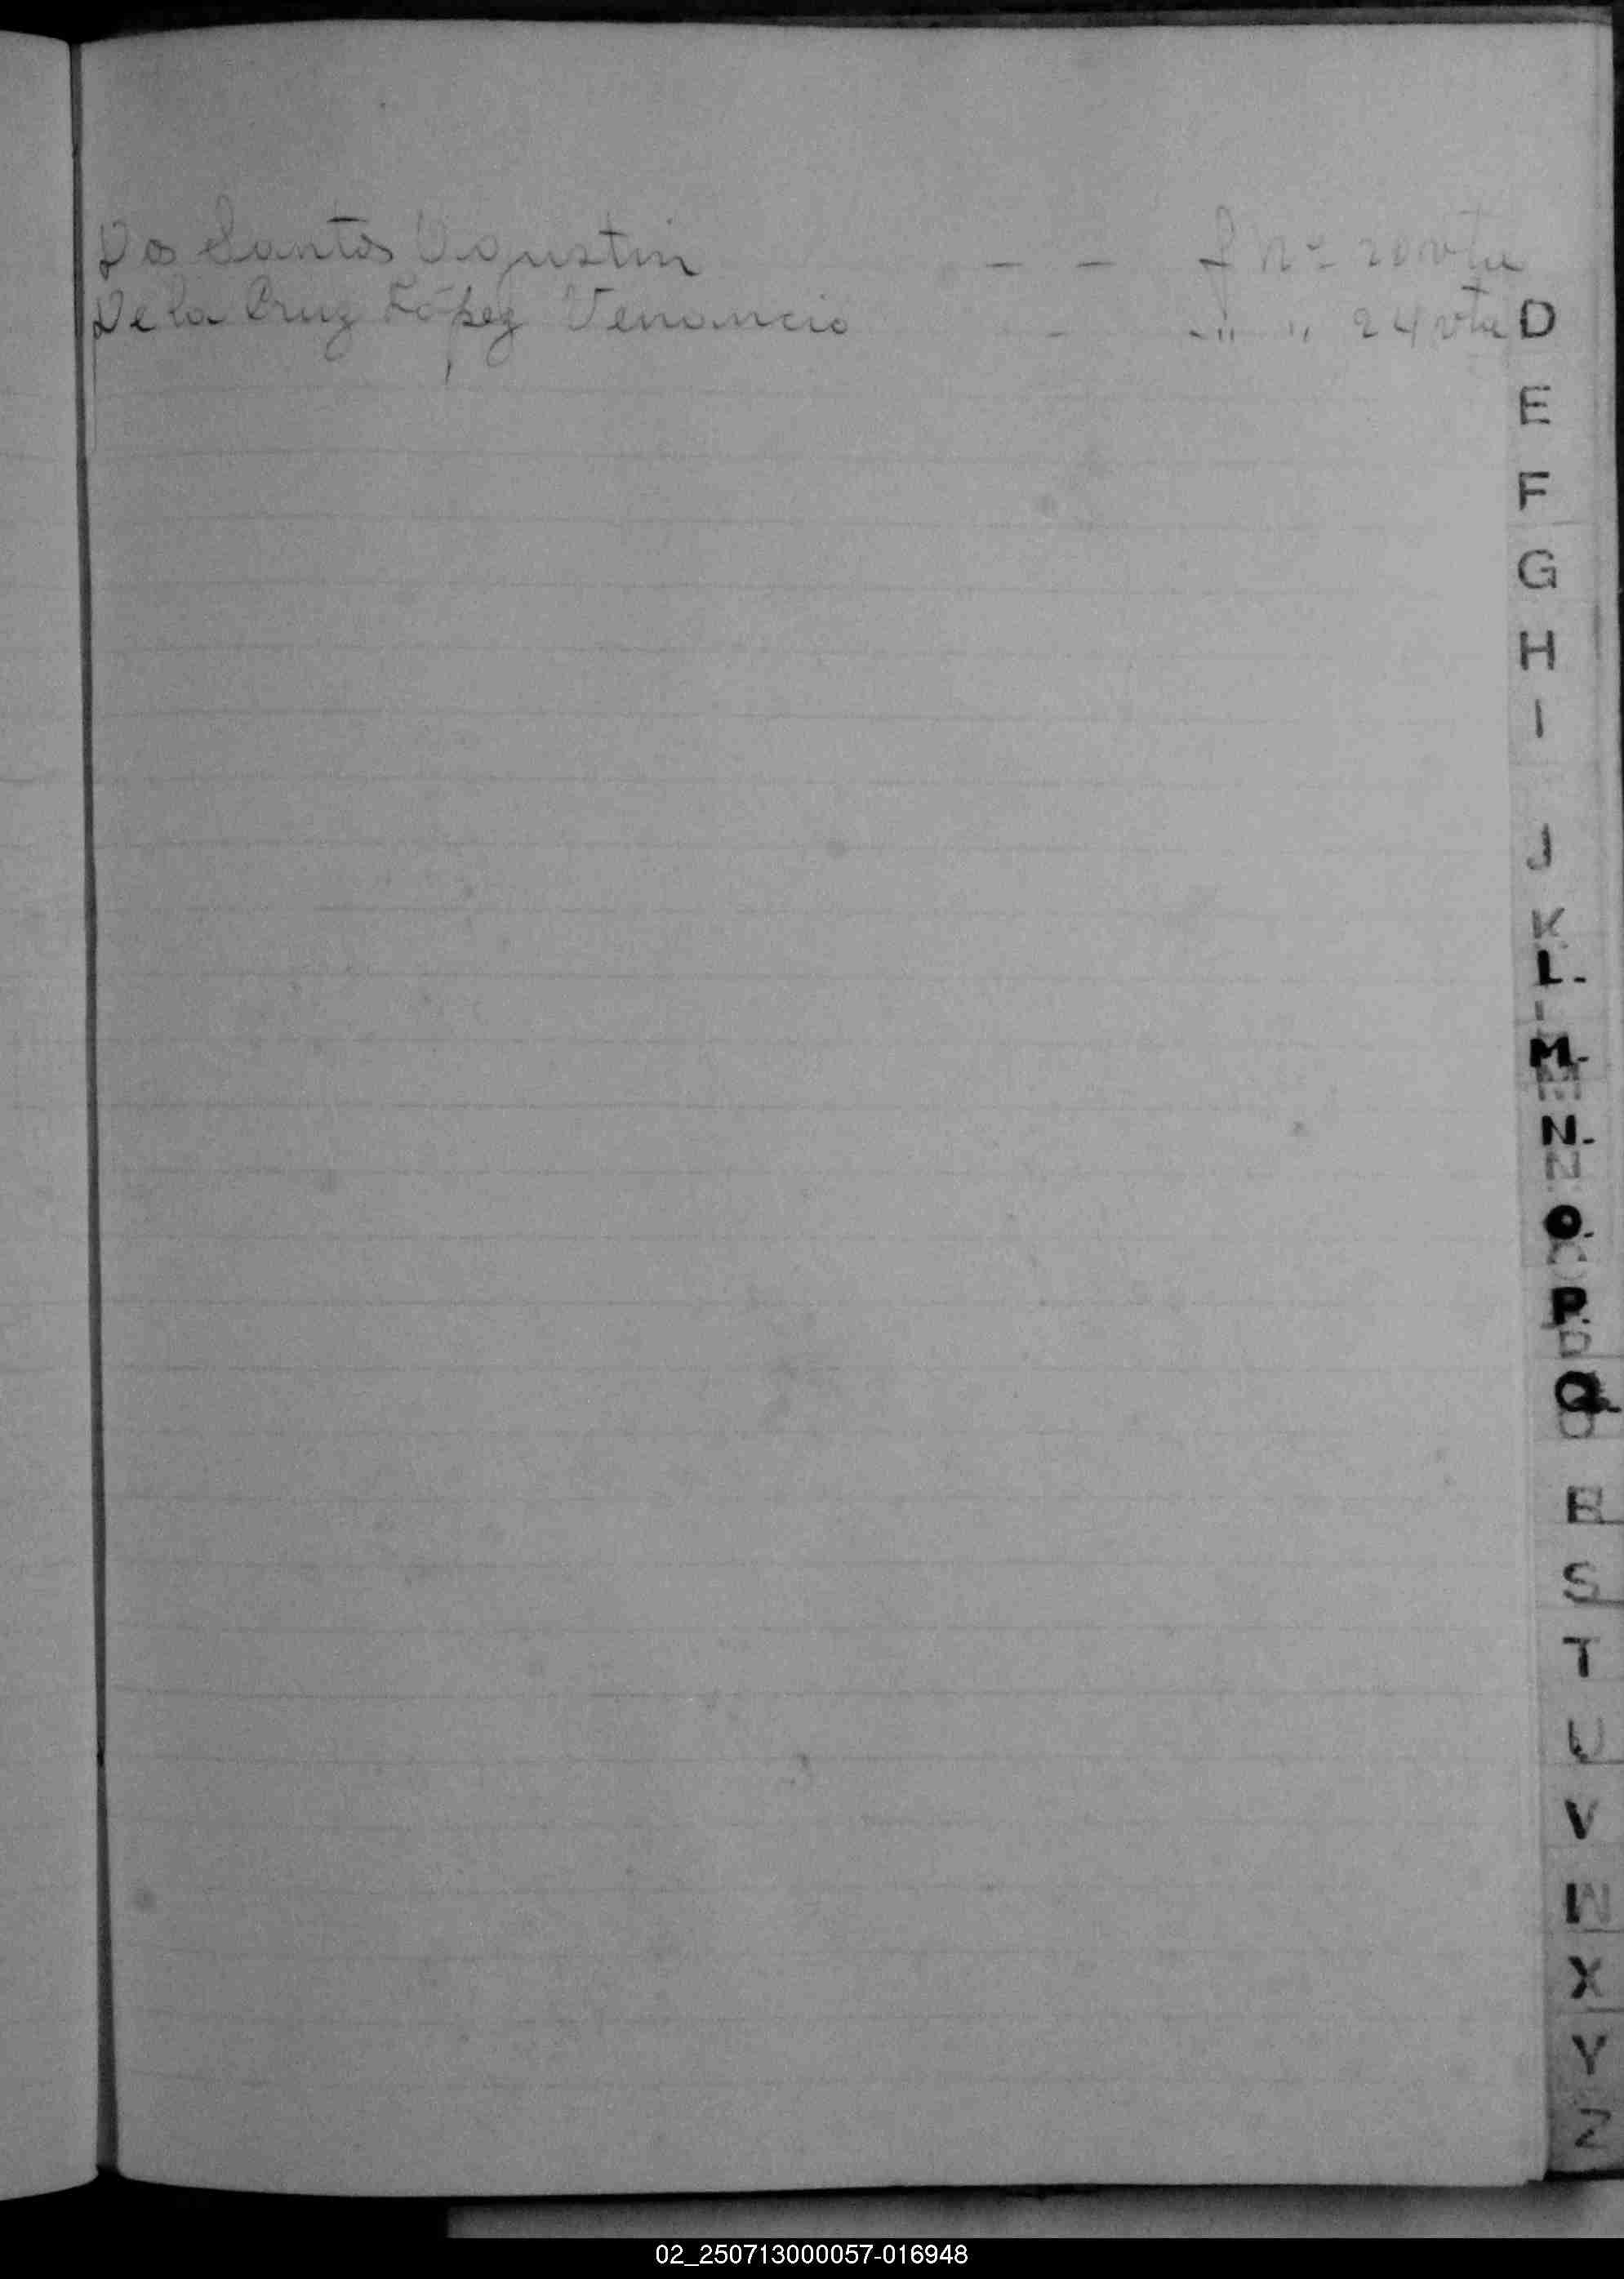 Dos Santos Agustin - - f Nº 20 vta
De la Cruz López Venancio - - " " 24 vta
D
E
F
G
H
I
J
K
L.
M.
N.
O.
P.
Q
R
S
T
U
V
W
X
Y
Z
02_250713000057-016948